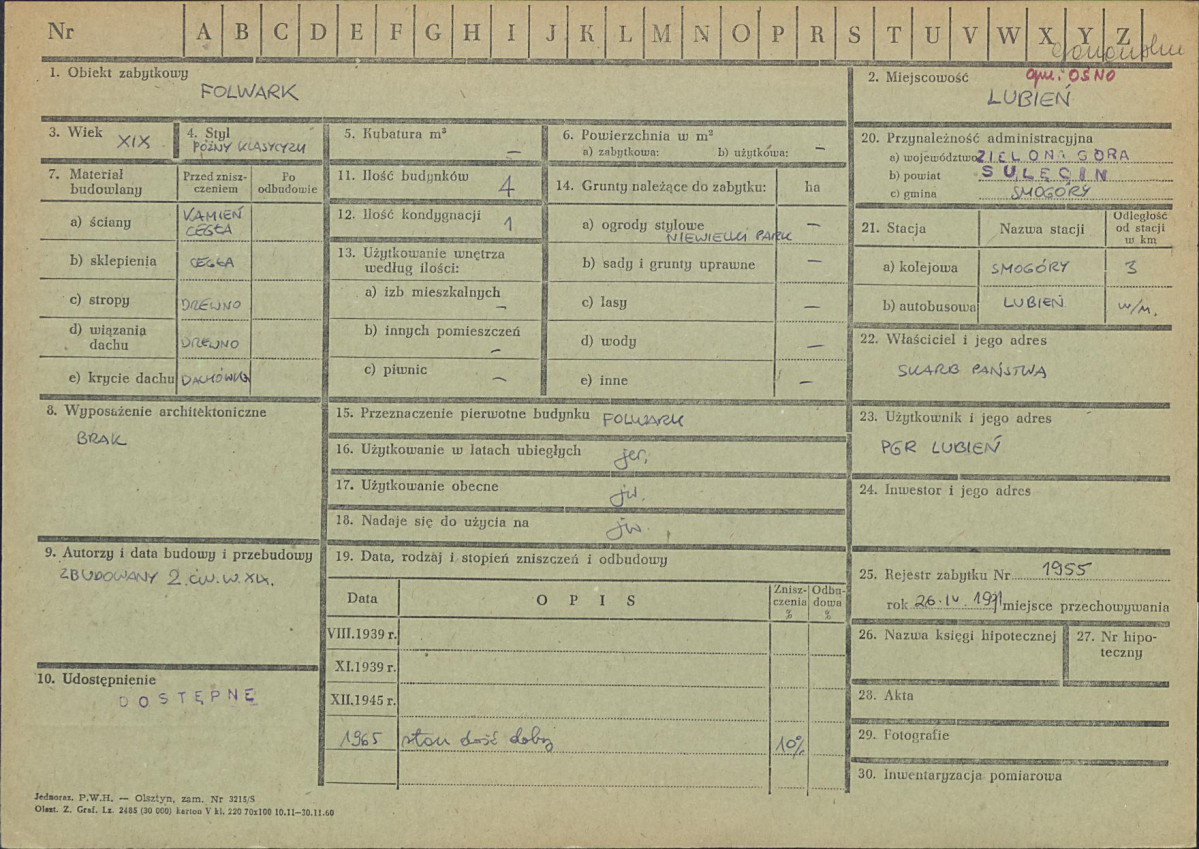 Nr A B C D E F G H I J K L M N O P R S T U V W X Y Z
1. Obiekt zabytkowy
FOLWARK
2. Miejscowość
gm. OŚNO
LUBIEŃ
3. Wiek XIX
4. Styl
PÓŹNY KLASYCYZM
5. Kubatura m³
—
6. Powierzchnia w m²
a) zabytkowa: b) użytkowa: —
7. Materiał budowlany
Przed zniszczeniem
Po odbudowie
a) ściany KAMIEŃ CEGŁA
b) sklepienia CEGŁA
c) stropy DREWNO
d) wiązania dachu DREWNO
e) krycie dachu DACHÓWKA
8. Wyposażenie architektoniczne
BRAK
9. Autorzy i data budowy i przebudowy
ZBUDOWANY 2. ćw. w. XIX.
10. Udostępnienie
DOSTĘPNE
11. Ilość budynków 4
12. Ilość kondygnacji 1
13. Użytkowanie wnętrza
według ilości:
a) izb mieszkalnych
—
b) innych pomieszczeń
—
c) piwnic —
14. Grunty należące do zabytku: ha
a) ogrody stylowe —
NIEWIELKI PARK
b) sady i grunty uprawne —
c) lasy —
d) wody —
e) inne —
15. Przeznaczenie pierwotne budynku FOLWARK
16. Użytkowanie w latach ubiegłych
17. Użytkowanie obecne jw.
18. Nadaje się do użycia na jw.
19. Data, rodzaj i stopień zniszczeń i odbudowy
Data OPIS Zniszczenia % Odbudowa %
VIII.1939 r.
XI.1939 r.
XII.1945 r.
1965 stan dość dobry 10%
20. Przynależność administracyjna
a) województwo ZIELONA GÓRA
b) powiat SULĘCIN
c) gmina SMOGÓRY
21. Stacja Nazwa stacji Odległość od stacji w km
a) kolejowa SMOGÓRY 3
b) autobusowa LUBIEŃ w/m.
22. Właściciel i jego adres
SKARB PAŃSTWA
23. Użytkownik i jego adres
PGR LUBIEŃ
24. Inwestor i jego adres
25. Rejestr zabytku Nr 1955
rok 26.IV.1971 miejsce przechowywania
26. Nazwa księgi hipotecznej
27. Nr hipo-
teczny
28. Akta
29. Fotografie
30. Inwentaryzacja pomiarowa
Jednoraz. P.W.H. — Olsztyn, zam. Nr 3215/S
Olszt. Z. Graf. Lz. 2485 (30 000) karton V kl. 220 70x100 10.11—30.11.60